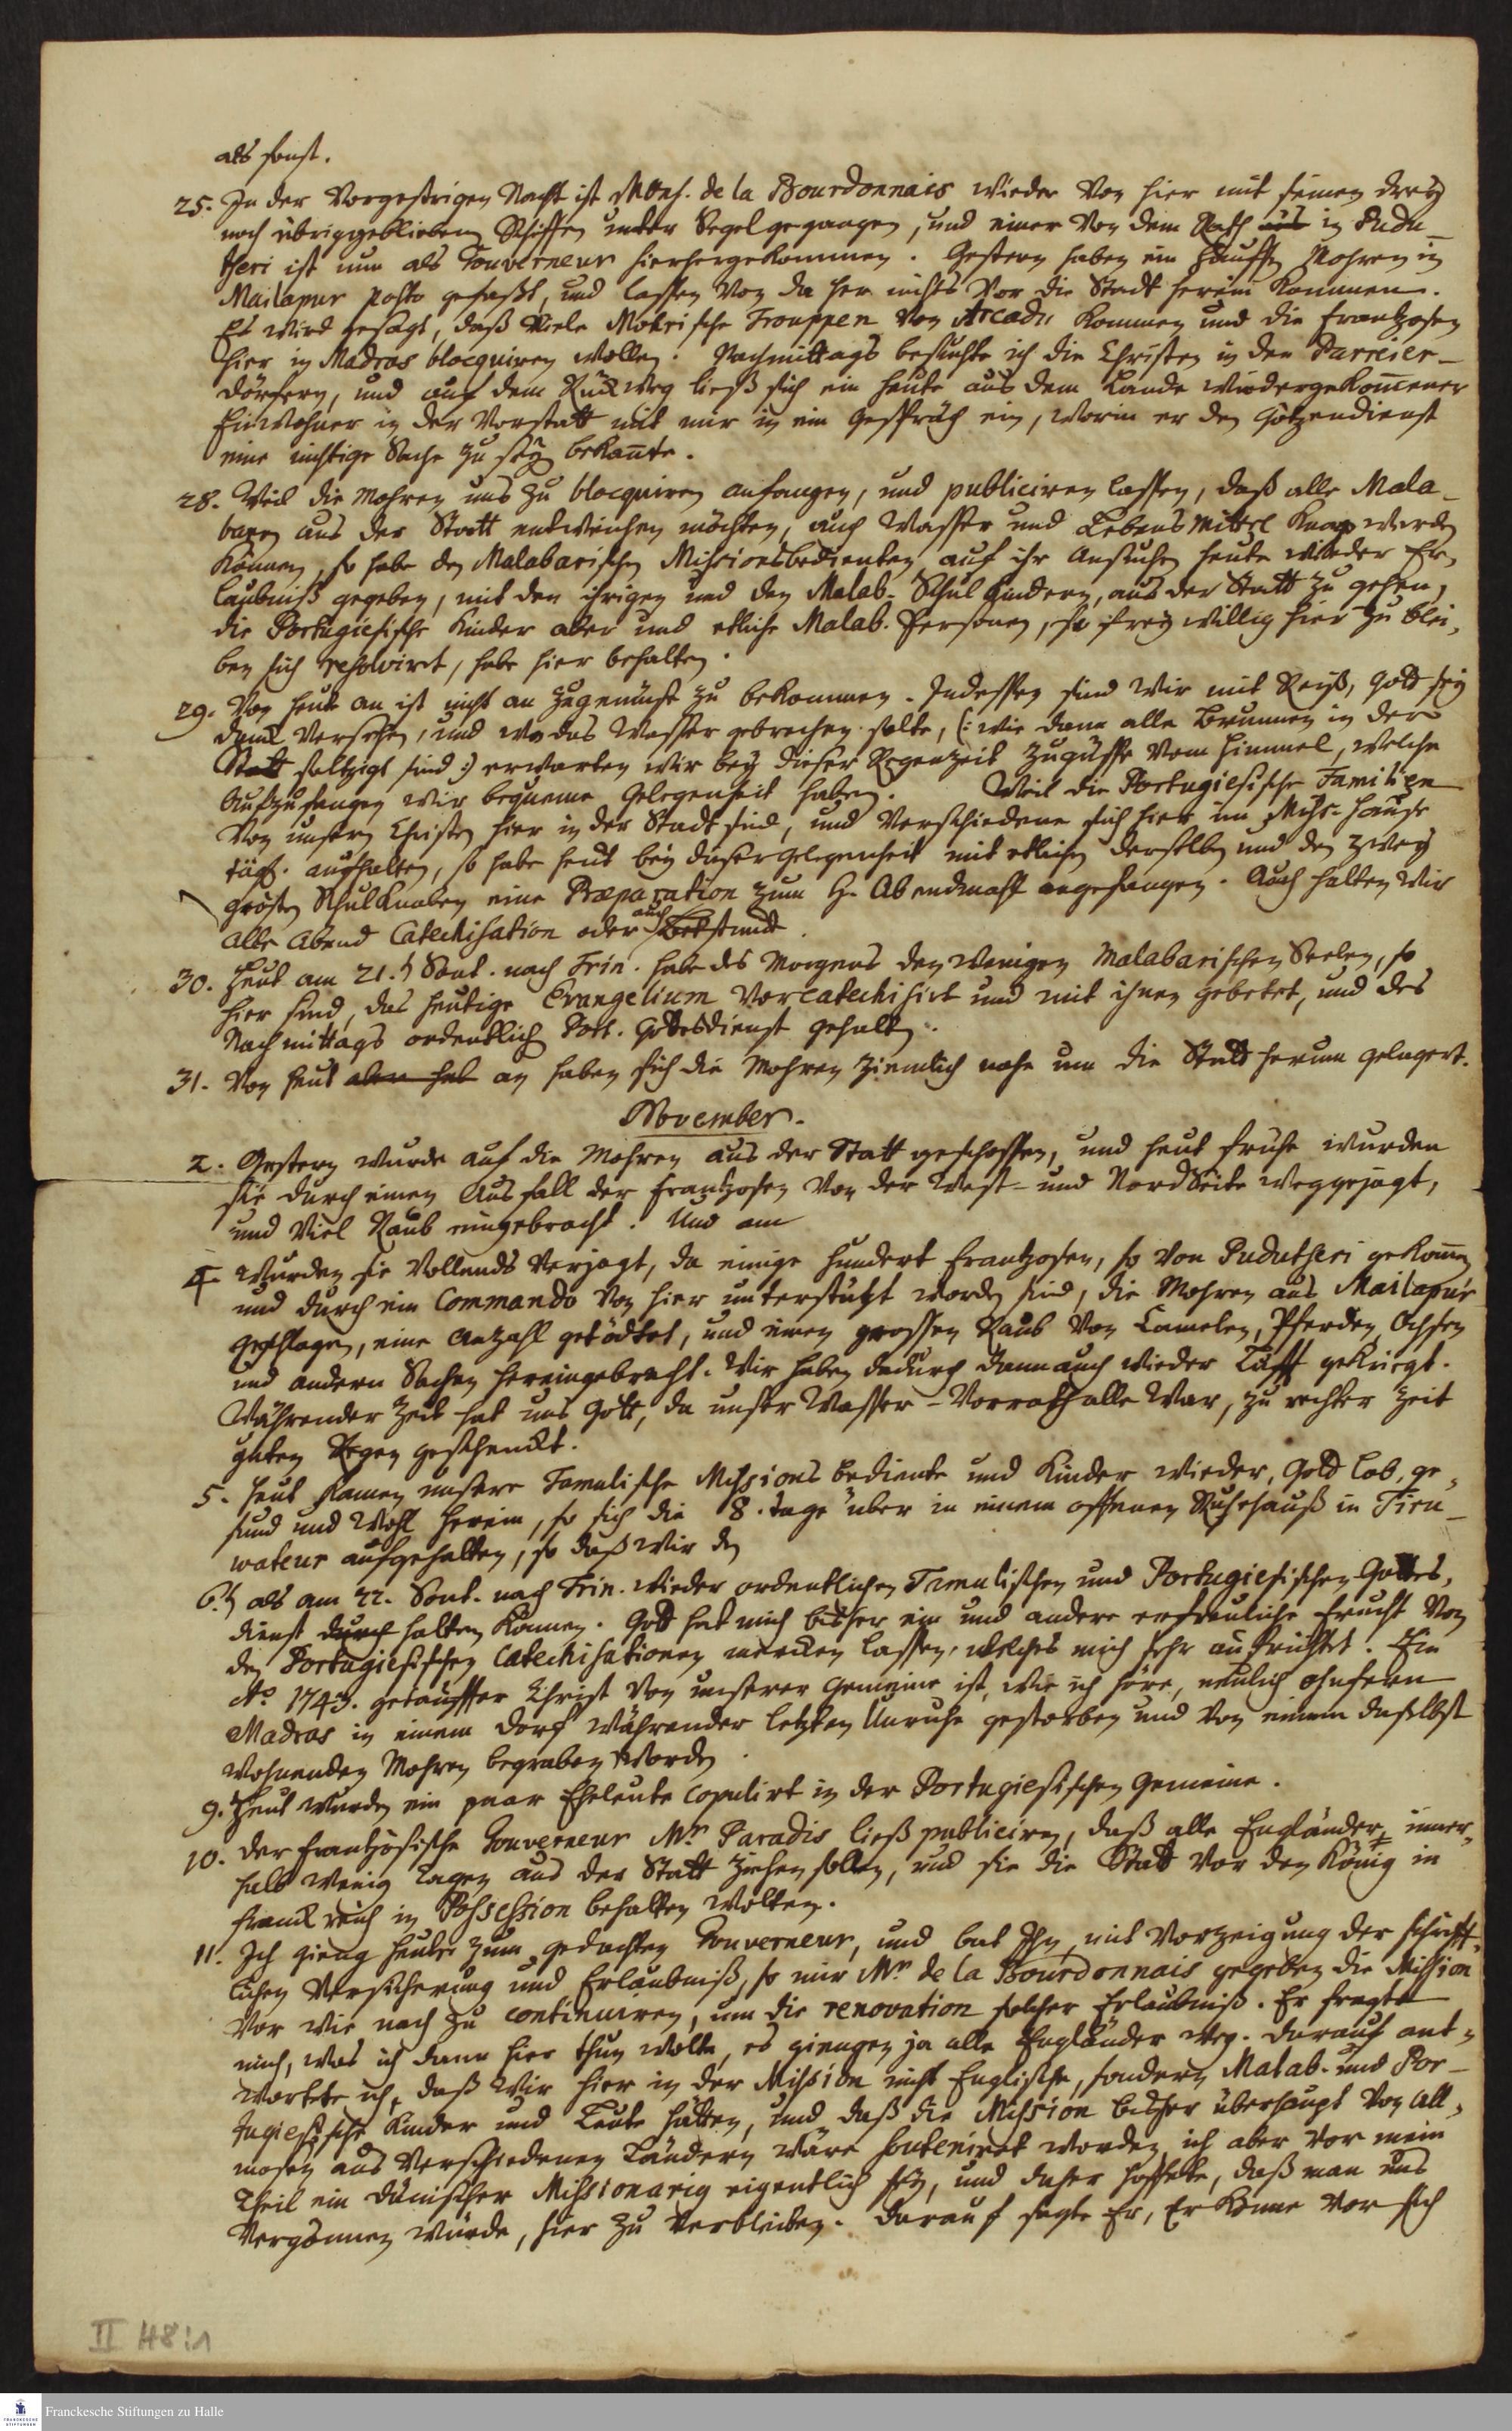 als sonst.
25. In der vorgestrigen Nacht ist Mons. de la Bourdonnais wieder von hier mit seinen drey
noch übriggeblieben Schiffen unter Segel gegangen, und einer von dem Rath aus in Pudu-
theri ist nun als Gouverneur hierhergekommen. Gestern haben ein Hauffen Mohren in
Mailapur posto gefaßt, und lassen von da her nichts vor die Stadt herein kommen.
Es wird gesagt, daß viele Mohrische Trouppen von Arcadu kommen und die Frantzosen
hier in Madras blocquiren wollen. Nachmittags besuchte ich die Christen in den Parreier-
dörfern, und auf dem Rückweg ließ sich ein heute aus dem Lande wiedergekom̅ener
Einwohner in der Vorstatt mit mir in ein Gespräch ein, worin er den Götzendienst
eine nichtige Sache zu seyn bekan̅te.
28. Weil die Mohren uns zu blocquiren anfangen, und publiciren lassen, daß alle Mala-
baren aus der Statt entweichen möchten, auch Wasser und Lebens Mittel knap werden
können, so habe den Malabarischen Missionsbedienten auf ihr Ansuchen heute wieder Er-
laubniß gegeben, mit den ihrigen und den Malab. Schul Kindern, aus der Statt zu gehen,
die Portugiesische Kinder aber und etliche Malab. Personen, so freywillig hier zu blei-
ben sich resolvirt, habe hier behalten.
29. Von heut an ist nicht an Zugemüse zu bekommen. Indessen sind wir mit Reiß, Gott sey
danck versehen, und wo das Wasser gebrechen solte, (: wie dann alle Brunnen in der
Statt saltzigt sind :) erwarten wir bey dieser Regenzeit Zugüsse vom Himmel, welche
aufzufangen wir bequeme Gelegenheit haben. Weil die Portugiesische Familien
von unsern Christen hier in der Stadt sind, und verschiedene sich hier im Miss-Hause
tägl. aufhalten, so habe heut bey dieser Gelegenheit mit etlichen derselben und den zwey
grösten Schul Knaben eine Præparation zum H. Abendmahl angefangen. Auch halten wir
alle Abend Catechisation oder auch Betstunde.
30. Heut am 21. Sont. nach Trin. habe des Morgens den wenigen Malabarischen Seelen, so
hier sind, das heutige Evangelium vorcatechisirt und mit ihnen gebetet, und des
Nachmittags ordentlich Port. Gottesdienst gehalten.
31. Von heut aber hab an haben sich die Mohren ziemlich nahe um die Stadt herum gelagert.
November.
2. Gestern wurde auf die Mohren aus der Statt geschossen, und heut frühe wurden
sie durch einen Ausfall der Frantzosen von der West- und NordSeite weggejagt,
und viel Raub eingebracht. Und am
4. wurden sie vollends verjagt, da einige hundert Frantzosen, so von Pudutheri gekom̅en
und durch ein Commando von hier unterstützt worden sind, die Mohren aus Mailapur
geschlagen, eine Anzahl getödtet, und einen grossen Raub von Camelen, Pferden, Ochsen
und andern Sachen hereingebracht. Wir haben dadurch dann auch wieder Lufft gekriegt.
Währender Zeit hat uns Gott, da unser Wasser-Vorrath alle war, zu rechter Zeit
guten Regen geschenckt.
5. Heut kamen unsere Tamulische Missions bediente und Kinder wieder, Gott lob, ge-
sund und wohl herein, so sich die 8. Tage über in einem offenen Ruhehauß in Tiru-
wateur aufgehalten, so daß wir den
6. als am 22. Sont. nach Trin. wieder ordentlichen Tamulischen und Portugiesischen Gottes-
dienst durch halten können. Gott hat mich bisher ein und andere erfreuliche Frucht von
den Portugiesischen Catechisationen mercken lassen, welches mich sehr aufrichtet. Ein
Aº. 1743. getauffter Christ von unserer Gemeine ist, wie ich höre, neulich ohnfern
Madras in einem Dorf währender letzten Unruhe gestorben und von einem daselbst
wohnenden Mohren begraben worden.
9. Heut wurden ein paar Eheleute copulirt in der Portugiesischen Gemeine.
10. Der Frantzösische Gouverneur Mr. Paradis ließ publiciren, daß alle Engländer, inner-
halb wenig Tagen aus der Statt ziehen sollen, und sie die Statt vor den König in
Franckreich in Possession behalten wolten.
11. Ich gieng heute zum gedachten Gouverneur, und bat Ihn, mit Vorzeigung der schrifft-
lichen Versicherung und Erlaubniß, so mir Mr. de la Bourdonnais gegeben die Mission
vor wie nach zu continuiren, um die renovation solcher Erlaubniß. Er fragte
mich, was ich dann hier thun wolte, es giengen ja alle Engländer weg. Darauf ant-
wortete ich, daß wir hier in der Mission nicht Englische, sondern Malab. und Por-
tugiesische Kinder und Leute hätten, und daß die Mission bisher überhaupt von All-
mosen aus verschiedenen Ländern wäre souteniret worden, ich aber vor mein
Theil ein Dänischer Missionarius eigentlich sey, und daher hoffete, daß man uns
vergönnen würde, hier zu verbleiben. Darauf sagte Er, Er könne vor sich
II H8:1
Franckesche Stiftungen zu Halle